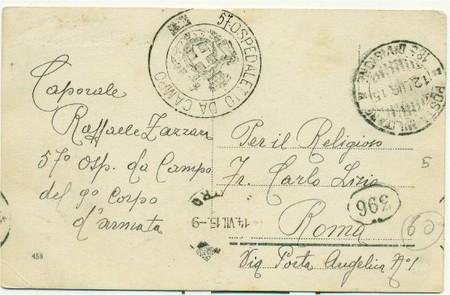 57º OSPEDALETTO DA CAMPO
POSTA MILITARE
12 LUG. 15
Caporale
Raffaele Zazzara
57º Osp. da Campo
del 9º Corpo
d'armata
Per il Religioso
Fr. Carlo Lizio
Roma
Via Porta Angelica Nº1
14.VII.15.-9
396
60
5
458